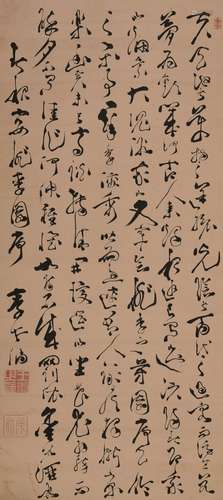 夫天地者萬物之逆旅光陰者百代之過客而浮生若
夢為歡幾何古人秉燭夜遊良有以也況陽春召我以
烟景大塊假我以文章會桃李之芳園序天倫
之樂事群季俊秀皆為惠連吾人詠歌獨慚康
樂幽賞未已高談轉清開瓊筵以坐花飛羽觴而
醉月不有佳作何伸雅懷如詩不成罰依金谷酒數
春夜宴桃李園序 李